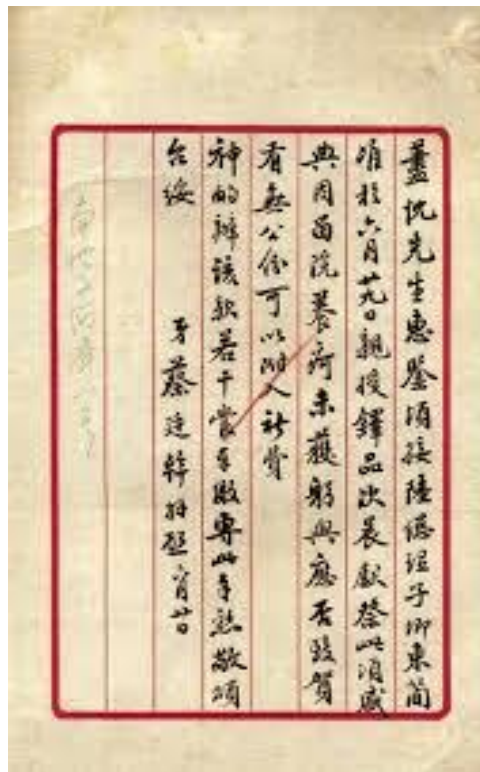 藎忱先生惠鑒頃接陸徵祥子卿東簡
准於六月廿九日親授鐸品次晨獻祭此項盛
典因留院養疴未獲躬與應否致賀
有無公份可以附入社費
神的辦該款若干當手繳專此手懇敬頌
台綏
弟蔡廷幹拜啟 六月廿日